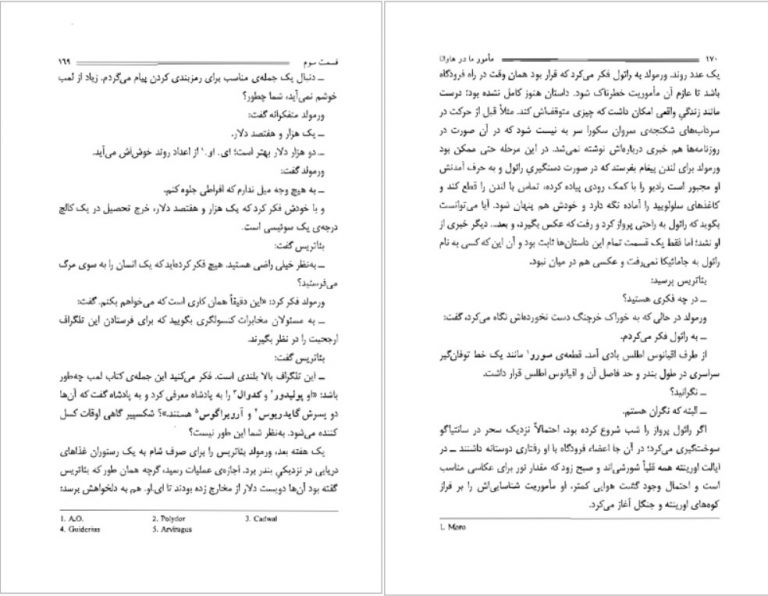 قسمت سوم ۱۶۹
ـ دنبال یک جمله‌ی مناسب برای رمزبندی کردن پیام می‌گردم. زیاد از لمب
خوشم نمی‌آید، شما چطور؟
ورمولد متفکرانه گفت:
ـ یک هزار و هفتصد دلار.
ـ دو هزار دلار بهتر است؛ ای. او.۱ از اعداد روند خوش‌اش می‌آید.
ورمولد گفت:
ـ به هیچ وجه میل ندارم که افراطی جلوه کنم.
و با خودش فکر کرد که یک هزار و هفتصد دلار، خرج تحصیل در یک کالج
درجه‌ی یک سوئیسی است.
بئاتریس گفت:
ـ به‌نظر خیلی راضی هستید. هیچ فکر کرده‌اید که یک انسان را به سوی مرگ
می‌فرستید؟
ورمولد فکر کرد: «این دقیقاً همان کاری است که می‌خواهم بکنم. گفت:
ـ به مسئولان مخابرات کنسولگری بگویید که برای فرستادن این تلگراف
ارجحیت را در نظر بگیرند.
بئاتریس گفت:
ـ این تلگراف بالا بلندی است. فکر می‌کنید این جمله‌ی کتاب لمب چه‌طور
باشد: «او پولیدور۲ و کدوال۳ را به پادشاه معرفی کرد و به پادشاه گفت که آن‌ها
دو پسرش گایدریوس۴ و آرویراگوس۵ هستند.»؟ شکسپیر گاهی اوقات کسل
کننده می‌شود. به‌نظر شما این طور نیست؟
یک هفته بعد، ورمولد بئاتریس را برای صرف شام به یک رستوران غذاهای
دریایی در نزدیکی بندر برد. اجازه‌ی عملیات رسید، گرچه همان طور که بئاتریس
گفته بود آن‌ها دویست دلار از مخارج زده بودند تا ای.او. هم به دلخواهش برسد:
1. A.O. 2. Polydor 3. Cadwal
4. Guiderius 5. Arviragus
۱۷۰ مأمور ما در هاوانا
یک عدد روند. ورمولد به رائول فکر می‌کرد که قرار بود همان وقت در راه فرودگاه
باشد تا عازم آن مأموریت خطرناک شود. داستان هنوز کامل نشده بود؛ درست
مانند زندگی واقعی امکان داشت که چیزی متوقف‌اش کند. مثلاً قبل از حرکت در
سرداب‌های شکنجه‌ی سروان سگورا سر به نیست شود که در آن صورت در
روزنامه‌ها هم خبری درباره‌اش نوشته نمی‌شد. در این مرحله حتی ممکن بود
ورمولد برای لندن پیغام بفرستد که در صورت دستگیری رائول و به حرف آمدنش
او مجبور است رادیو را با کمک رودی پیاده کرده، تماس با لندن را قطع کند و
کاغذهای سلولویید را آماده نگه دارد و خودش هم پنهان شود. آیا می‌توانست
بگوید که رائول به راحتی پرواز کرد و رفت که عکس بگیرد، و بعد... دیگر خبری از
او نشد؛ اما فقط یک قسمت تمام این داستان‌ها ثابت بود و آن این که کسی به نام
رائول به جامائیکا نمی‌رفت و عکسی هم در میان نبود.
بئاتریس پرسید:
ـ در چه فکری هستید؟
ورمولد در حالی که به خوراک خرچنگ دست نخورده‌اش نگاه می‌کرد، گفت:
ـ به رائول فکر می‌کردم.
از طرف اقیانوس اطلس بادی آمد. قطعه‌ی مورو۱ مانند یک خط توفان‌گیر
سراسری در طول بندر و حد فاصل آن و اقیانوس اطلس قرار داشت.
ـ نگرانید؟
ـ البته که نگران هستم.
اگر رائول پرواز را شب شروع کرده بود، احتمالاً نزدیک سحر در سانتیاگو
سوخت‌گیری می‌کرد؛ در آن جا اعضاء فرودگاه با او رفتاری دوستانه داشتند ـ در
ایالت اورینته همه قلباً شورشی‌اند و صبح زود که مقدار نور برای عکاسی مناسب
است و احتمال وجود گشت هوایی کمتر، او مأموریت شناسایی‌اش را بر فراز
کوه‌های اورینته و جنگل آغاز می‌کرد.
1. Moro